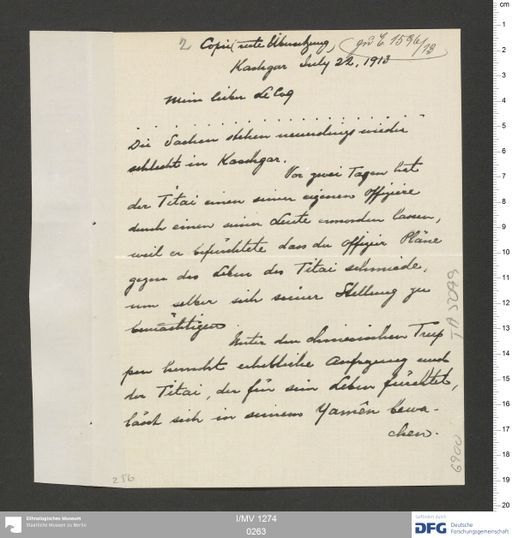 2 Copie (reste Übersetzung) zu E 1596/13
Kashgar July 22, 1913
Mein lieber Le Coq
. . . . . . . . . . . . . . . . . .
Die Sachen stehen neuerdings wieder
schlecht in Kashgar.
Vor zwei Tagen liet
der Titai einen seiner eigenen Offiziere
durch einen seiner Leute ermorden lassen,
weil er befürchtete dass der Offizier Pläne
gegen das Leben des Titai schmiede,
um selber sich seiner Stellung zu
bemächtigen.
Unter den chinesischen Trup
pen herrscht erhebliche Aufregung und
der Titai, der für sein Leben fürchtet,
lässt sich in seinem Yamên bewa-
chen.
TA 5099
6900
256
Ethnologisches Museum
Staatliche Museen zu Berlin
I/MV 1274
0263
Gefördert durch
DFG Deutsche
Forschungsgemeinschaft
cm
0
1
2
3
4
5
6
7
8
9
10
11
12
13
14
15
16
17
18
19
20